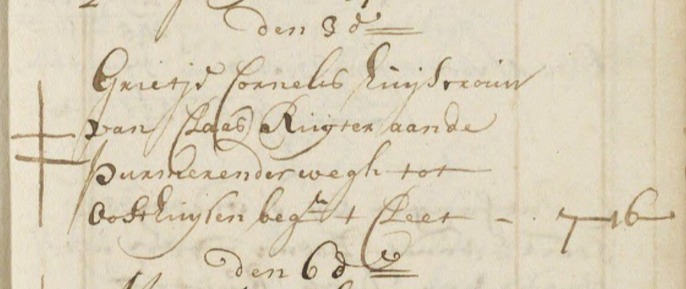 den 3 do
Grietje Cornelis huijsvrouw
van Claas Ruijter aande
purmerender wegh tot
Oosthuijsen begr t Cleet - . 7-16-
den 6 do